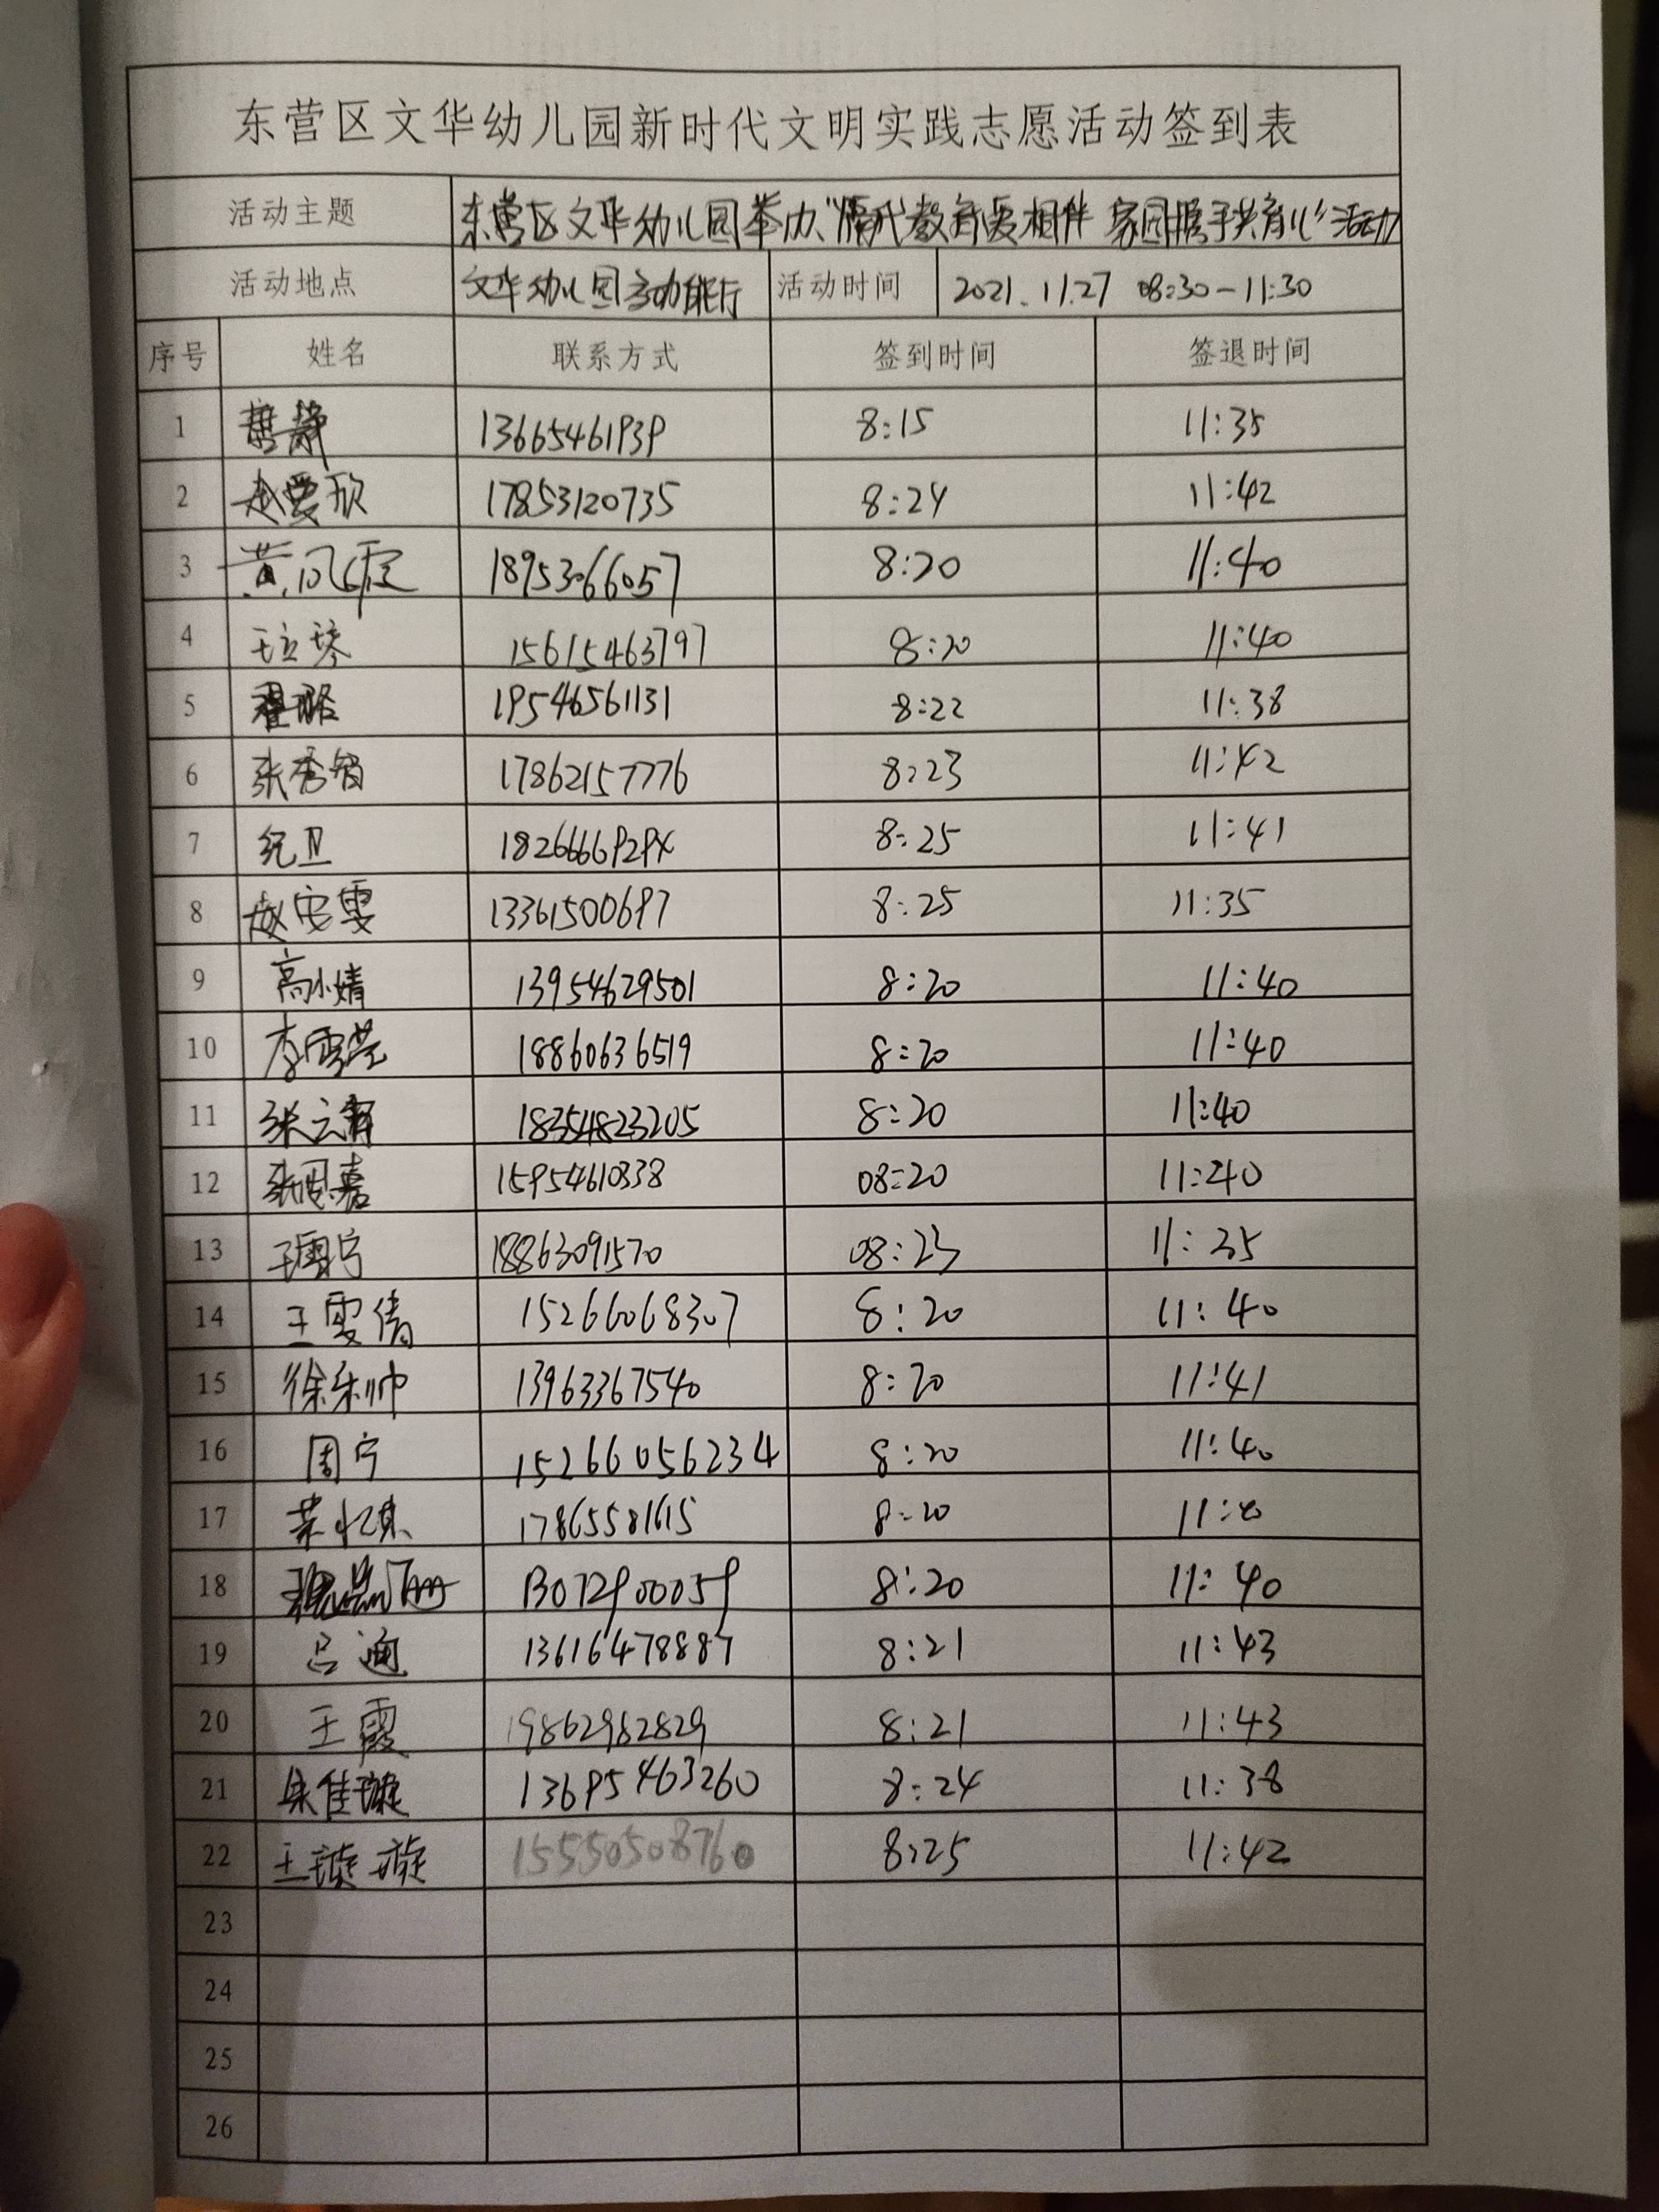 东营区文华幼儿园新时代文明实践志愿活动签到表
活动主题 东营区文华幼儿园举办"隔代教育爱相伴 家园携手共育儿"活动
活动地点 文华幼儿园多功能厅 活动时间 2021.11.27 08:30-11:30
序号 姓名 联系方式 签到时间 签退时间
1 13665461939 8:15 11:35
2 17853120735 8:24 11:42
3 黄凤霞 18953066057 8:20 11:40
4 15615463797 8:20 11:40
5 翟璐 19546561131 8:22 11:38
6 张秀娟 17862157776 8:23 11:42
7 纪卫 8:25 11:41
8 赵安雯 13361500697 8:25 11:35
9 高小婧 13954629501 8:20 11:40
10 李雪莹 18860636519 8:20 11:40
11 18354823205 8:20 11:40
12 15954610338 08:20 11:40
13 18863091570 08:23 11:35
14 王雯倩 15266068307 8:20 11:40
15 徐利帅 13963367540 8:20 11:41
16 周宁 15266056234 8:20 11:40
17 17865581615 8:20
18 13072900059 8:20 11:40
19 吕迪 13616478887 8:21 11:43
20 王霞 19862982829 8:21 11:43
21 朱佳璇 13695463260 8:24 11:38
22 王璇璇 15550508760 8:25 11:42
23
24
25
26